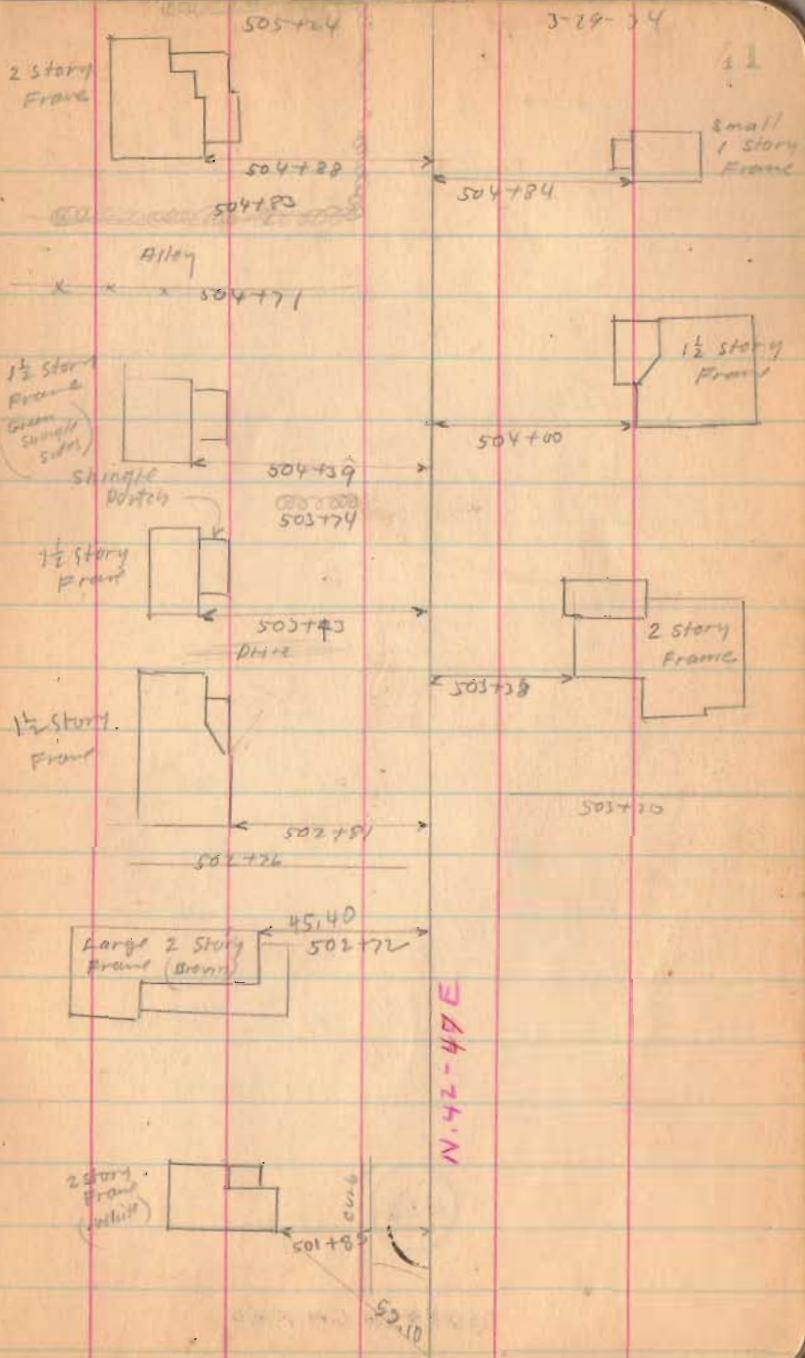 505+24
3-29-34
41
2 Story
Frame
Small
1 Story
Frame
504+88
504+84
504+83
Alley
x x x 504+71
1½ Story
Frame
(Green
Shingle
Sides)
1½ Story
Frame
504+00
504+39
Shingle
Portch
503+74
1½ Story
Frame
503+43
2 Story
Frame
Drive
503+38
1½ Story
Frame
503+20
502+81
502+76
45.40
Large 2 Story
Frame (Brown)
502+72
N.42-47E
2 Story
Frame
(White)
curb
501+85